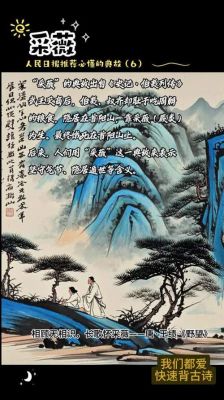 采薇
人民日报推荐必懂的典故（6）
“采薇”的典故出自《史记·伯夷列传》
武王灭商后，伯夷、叔齐却耻于吃周朝
的粮食，隐居在首阳山，靠采薇（蕨类）
为生，最终饿死在首阳山上。
后来，人们用“采薇”这一典故来表示
坚守气节、隐居避世等含义。
相顾无相识，长歌怀采薇——唐·王绩《野望》
我们都爱
快速背古诗